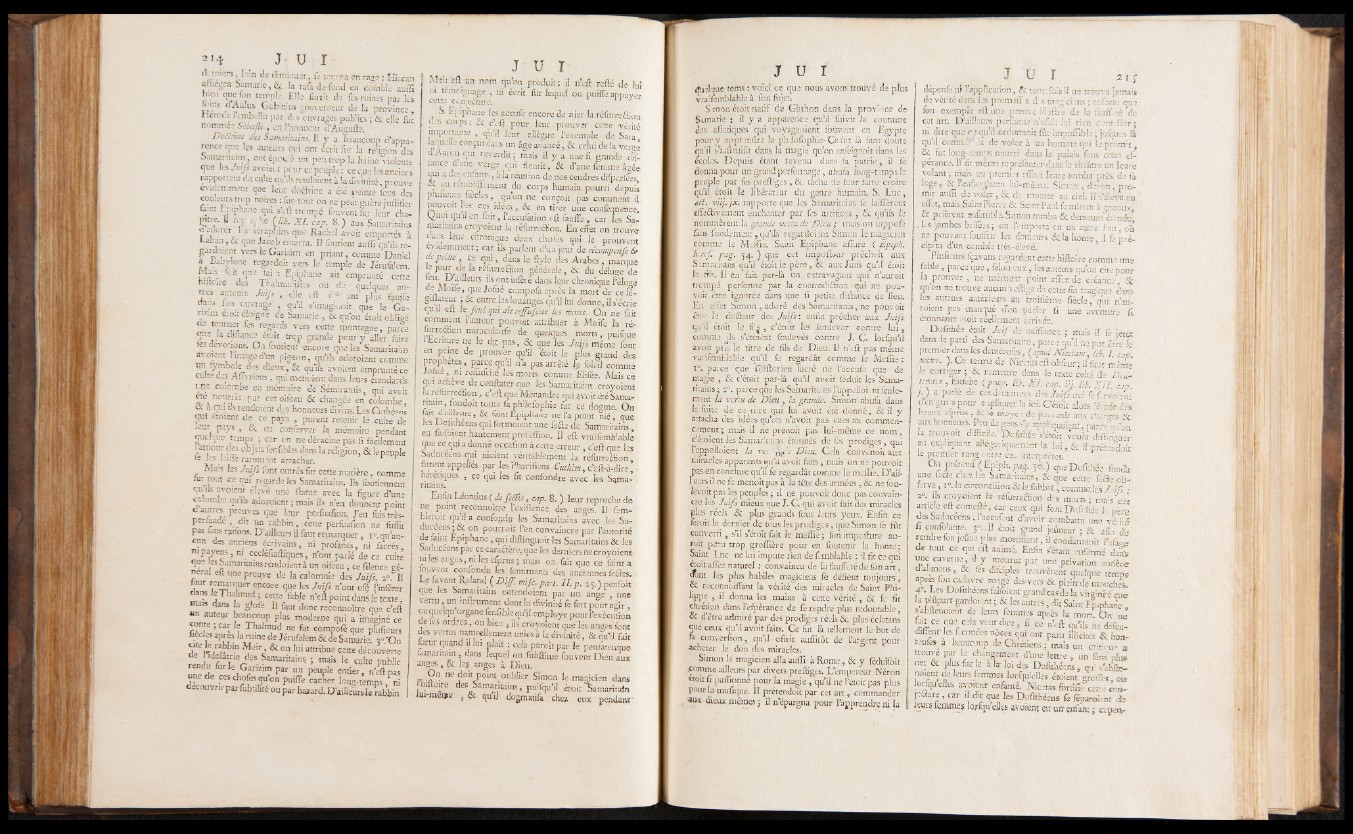 214 J U I
derniers, loin de diminuer, se tourna en rage : Hircan
assiégea Samarie, & la rasa de-fond en comble aussi
bien que son temple. Elle sortit de ses ruines par les
soins d'Aulus Gabinius gouverneur de la province,
Hérode l'embellit par des ouvrages publics ; & elle fut
nommée Sébaste, en l'honneur d'Auguste.
Doctrine des Samaritains. Il y a beaucoup d'appa-
rence que les auteurs qui ont écrit sur la religion des
Samaritains, ont épousé un peu trop la haine violente
que les Juifs avoient pour ce peuple : ce que les anciers
rapportent du culte qu'ils rendoient à la divinité, prouve
évidemment que leur doctrine a été peinte sous des
couleurs trop noires : sur-tout on ne peut guère justifier
saint Epiphane qui s'est trompé souvent sur leur cha-
pitre. Il (lib. XI. cap. 8.) aux Samaritains
d'adorer les téraphins que Rachel avoit emportés à
Laban, & que Jacob enterra. Il soutient aussi qu'ils re-
gardoient vers le Garizim en priant, comme Daniel
à Babylone regardoit vers le temple de Jérusalem.
Mais soit que saint Epiphane ait emprunté cette
histoire des Thalmudistes ou de quelques au-
tres auteurs Juifs, elle est d'autant plus fausse
dans son ouvrage, qu'il s'imaginoit que le Ga-
rizim étoit éloigné de Samarie, & qu'on étoit obligé
de tourner ses regards vers cette montagne, parce
que la distance étoit trop grande pour y aller faire
ses dévotions. On soutient encore que les Samaritains
avoient l'image d'un pigeon, qu'ils adoroient comme
un symbole des dieux, & qu'ils avoient emprunté ce
culte des Assyriens, qui mettoient dans leurs étendards
une colombe en mémoire de Sémiramis, qui avoit
été nourrie par cet oiseau & changée en colombe,
& à qui ils rendoient des honneurs divins. Les Cuthéens
qui étoient de ce pays, purent retenir le culte de
leur pays, & en conserver la mémoire pendant
quelque temps ; car on ne déracine pas si facilement
l'amour des objets sensibles dans la religion, & le peuple
se les laisse rarement arracher.
Mais les Juifs sont outrés sur cette matière, comme
sur tout ce qui regarde les Samaritains. Ils soutiennent
qu'ils avoient élevé une statue avec la figure d'une
colombe qu'ils adoroient ; mais ils n'en donnent point
d'autres preuves que leur persuasion. J'en suis très-
persuadé, dit un rabbin, cette persuasion ne suffit
pas sans raisons. D'ailleurs il faut remarquer, 1º. qu'au-
cun des anciens écrivains, ni profanes, ni sacrés,
ni payens, ni ecclésiastiques, n'ont parlé de ce culte
que les Samaritains rendoient à un oiseau ; ce silence gé-
néral est une preuve de la calomnie des Juifs. 2º. Il
faut remarquer encore que les Juifs n'ont osé l'insérer
dans le Thalmud ; cette fable n'est point dans le texte,
mais dans la glose. Il faut donc reconnoître que c'est
un auteur beaucoup plus moderne qui a imaginé ce
conte ; car le Thalmud ne fut composé que plusieurs
siècles après la ruine de Jérusalem & de Samarie. 3º. On
cite le rabbin Meir, & on lui attribue cette découverte
de l'idolâtrie des Samaritains ; mais le culte public
rendu sur le Garizim par un peuple entier, n'est pas
une de ces choses qu'on puisse cacher long-temps, ni
découvrir par subtilité ou par hazard. D'ailleurs le rabbin
J U I
Meïr est un nom qu'on produit : il n'est resté de lui
ni témoignage, ni écrit sur lequel on puisse appuyer
cette conjecture.
S. Epiphane les accuse encore de nier la résurrection
des corps : & c'est pour leur prouver cette vérité
importante, qu'il leur allègue l'exemple de Sara,
laquelle conçut dans un âge avancé, & celui de la verge
d'Aaron qui reverdit ; mais il y a une si grande dis-
tance d'une verge qui fleurit, & d'une femme âgée
qui a des enfans, à la réunion de nos cendres dispersées,
& au rétablissement du corps humain pourri depuis
plusieurs siècles, qu'on ne conçoit pas comment il
pouvoit lier ces idées, & en tirer une conséquence.
Quoi qu'il en soit, l'accusation est fausse, car les Sa-
maritains croyoient la résurrection. En effet on trouve
dans leur chronique deux choses qui le prouvent
évidemment ; car ils parlent d'un jour de récompense &
de peine, ce qui, dans le style des Arabes, marque
le jour de la résurrection générale, & du déluge de
feu. D'ailleurs ils ont inséré dans leur chronique l'éloge
de Moïse, que Josué composa après la mort de ce lé-
gislateur ; & entre les louanges qu'il lui donne, il s'écrie
qu'il est le seul qui ait ressuscité les morts. On ne sait
comment l'auteur pouvoit attribuer à Moïse la ré-
surrection miraculeuse de quelques morts, puisque
l'Ecriture ne le dit pas, & que les Juifs même sont
en peine de prouver qu'il étoit le plus grand des
prophètes, parce qu'il n'a pas arrêté le soleil comme
Josué, ni ressuscité les morts comme Elisée. Mais ce
qui achève de constater que les Samaritains croyoient
la résurrection, c'est que Ménandre qui avoit été Sama-
ritain, fondoit toute sa philosophie sur ce dogme. On
sait d'ailleurs, & saint Epiphane ne l'a point nié, que
les Dosithéens qui formoient une secte des Samaritains,
en faisoient hautement profession. Il est vraisemblable
que ce qui a donné occasion à cette erreur, c'est que les
Saducéens qui nioient véritablement la résurrection,
furent appellés par les Pharisiens Cuthim, c'est-à-dire,
hérétiques, ce qui les fit confondre avec les Sama-
ritains.
Enfin Léontius (de sectis, cap. 8.) leur reproche de
ne point reconnoître l'existence des anges. Il sem-
bleroit qu'il a confondu les Samaritains avec les Sa-
ducéens ; & on pourroit l'en convaincre par l'autorité
de saint Epiphane, qui distinguoit les Samaritains & les
Saducéens par ce caractère, que les derniers ne croyoient
ni les anges, ni les esprits ; mais on sait que ce saint a
souvent confondu les sentimens des anciennes sectes.
Le savant Reland (Diss. misc. part. II. p. 25.) pensoit
que les Samaritains entendoient par un ange, une
vertu, un instrument dont la divinité se sert pour agir,
ou quelqu'organe sensible qu'il employe pour l'exécution
de ses ordres, ou bien, ils croyoient que les anges sont
des vertus naturellement unies à la divinité, & qu'il fait
sortir quand il lui plaît : cela paroît par le pentateuque
samaritain, dans lequel on substitue souvent Dieu aux
anges, & les anges à Dieu.
On ne doit point oublier Simon le magicien dans
l'histoire des Samaritains, puisqu'il étoit Samaritain
lui-même, & qu'il dogmatisa chez eux pendant
J U I
quelque tems : voici ce que nous avons trouvé de plus
vraisemblable à son sujet.
Simon étoit natif de Gitthon dans la province de
Samarie ; il y a apparence qu'il suivit la coutume
des asiatiques qui voyageoient souvent en Egypte
pour y apprendre la philosophie. Ce fut là sans doute
qu'il s'instruisit dans la magie qu'on enseignoit dans les
écoles. Depuis étant revenu dans sa patrie, il se
donna pour un grand personnage, abusa long-temps le
peuple par ses prestiges, & tâcha de leur faire croire
qu'il étoit le libérateur du genre humain. S. Luc,
act. viij. jx. rapporte que les Samaritains se laissèrent
effectivement enchanter par ses artifices, & qu'ils le
nommèrent la grande vertu de Dieu ; mais on suppose
sans fondement, qu'ils regardoient Simon le magicien
comme le Messie. Saint Epiphane assure (Epiph.
hæres. pag. 54.) que cet imposteur prêchoit aux
Samaritains qu'il étoit le père, & aux Juifs qu'il étoit
le fils. Il en fait par-là un extravagant qui n'auroit
trompé personne par la contradiction qui ne pou-
voit être ignorée dans une si petite distance de lieu.
En effet Simon, adoré des Samaritains, ne pouvoit
être le docteur des Juifs : enfin prêcher aux Juifs
qu'il étoit le fils, c'étoit les soulever contre lui,
comme ils s'étoient soulevés contre J. C. lorsqu'il
avoit pris le titre de fils de Dieu. Il n'est pas même
vraisemblable qu'il se regardât comme le Messie :
1º. parce que l'historien sacré ne l'accuse que de
magie, & c'étoit par-là qu'il avoit séduit les Sama-
ritains ; 2º. parce que les Samaritains l'appelloient seule-
ment la vertu de Dieu, la grande. Simon abusa dans
la suite de ce titre qui lui avoit été donné, & il y
attacha des idées qu'on n'avoit pas eues au commen-
cement ; mais il ne prenoit pas lui-même ce nom,
c'étoient les Samaritains étonnés de ses prodiges, qui
l'appelloient la vertu de Dieu. Cela convenoit aux
miracles apparents qu'il avoit faits, mais on ne pouvoit
pas en conclure qu'il se regardât comme le messie. D'ail-
leurs il ne se mettoit pas à la tête des armées, & ne sou-
levoit pas les peuples ; il ne pouvoit donc pas convain-
cre les Juifs mieux que J. C. qui avoit fait des miracles
plus réels & plus grands sous leurs yeux. Enfin ce
seroit le dernier de tous les prodiges, que Simon se fût
converti, s'il s'étoit fait le messie ; son imposture au-
roit paru trop grossière pour en soutenir la honte ;
Saint Luc ne lui impute rien de semblable : il fit ce qui
étoit assez naturel : convaincu de la fausseté de son art,
dont les plus habiles magiciens se défient toujours,
& reconnoissant la vérité des miracles de Saint Phi-
lippe, il donna les mains à cette vérité, & se fit
chrétien dans l'espérance de se rendre plus redoutable,
& d'être admiré par des prodiges réels & plus éclatans
que ceux qu'il avoit faits. Ce fut là tellement le but de
sa conversion, qu'il offrit aussitôt de l'argent pour
acheter le don des miracles.
Simon le magicien alla aussi à Rome, & y séduisoit
comme ailleurs par divers prestiges. L'empereur Néron
étoit si passionné pour la magie, qu'il ne l'étoit pas plus
pour la musique. Il prétendoit par cet art, commander
aux dieux mêmes ; il n'épargna pour l'apprendre ni la
J U I 215
dépense ni l'application, & toutefois il ne trouva jamais
de vérité dans les promesses des magiciens ; ensorte que
son exemple est une preuve illustre de la fausseté de
cet art. D'ailleurs personne n'osoit lui rien contester ;
ni dire que ce qu'il ordonnoit fût impossible ; jusques là
qu'il commanda de voler à un homme qui le promit,
& fut long-temps nourri dans le palais sous cette es-
pérance. Il fit même représenter dans le théâtre un Icare
volant ; mais au premier effort Icare tomba près de sa
loge, & l'ensanglanta lui-même. Simon, dit-on, pro-
mit aussi de voler, & de monter au ciel. Il s'éleva en
effet, mais Saint Pierre & Saint Paul se mirent à genoux,
& prièrent ensemble. Simon tomba & demeura étendu,
les jambes brisées ; on l'emporta en un autre lieu, où
ne pouvant souffrir les douleurs & la honte, il se pré-
cipita d'un comble très-élevé.
Plusieurs sçavans regardent cette histoire comme une
fable, parce que, selon eux, les auteurs qu'on cite pour
la prouver, ne méritent point assez de créance, &
qu'on ne trouve aucun vestige de cette fin tragique dans
les auteurs antérieurs au troisième siècle, qui n'au-
roient pas manqué d'en parler si une aventure si
étonnante étoit réellement arrivée.
Dosithée étoit Juif de naissance ; mais il se jetta
dans le parti des Samaritains, parce qu'il ne put être le
premier dans les deutérotes, (apud Nicetam, lib. I. cap.
xxxv.). Ce terme de Nicetas est obscur ; il faut même
le corriger ; & remettre dans le texte celui de Deu-
terotes, Eusèbe (præp. lib. XI. cap. iij. lib. XII. cap.
j.) a parlé de ces deutérotes des Juifs qui se servoient
d'énigmes pour expliquer la loi. C'étoit alors l'étude des
beaux esprits, & le moyen de parvenir aux charges &
aux honneurs. Peu de gens s'y appliquoient, parce qu'on
la trouvoit difficile. Dosithée s'étoit voulu distinguer
en expliquant allégoriquement la loi, & il prétendoit
le premier rang entre ces interprètes.
On prétend (Epiph. pag. 30.) que Dosithée fonda
une secte chez les Samaritains, & que cette secte ob-
serva, 1º. la circoncision & le sabbat, comme les Juifs :
2º. ils croyoient la résurrection des morts ; mais cet
article est contesté, car ceux qui font Dosithée le père
des Saducéens, l'accusent d'avoir combattu une vérité
si consolante. 3º. Il étoit grand jeûneur ; & afin de
rendre son jeûne plus mortifiant, il condamnoit l'usage
de tout ce qui est animé. Enfin s'étant enfermé dans
une caverne, il y mourut par une privation entière
d'alimens, & ses disciples trouvèrent quelque temps
après son cadavre rongé des vers & plein de mouches.
4º. Les Dosithéens faisoient grand cas de la virginité que
la plûpart gardoient ; & les autres, dit Saint Epiphane,
s'abstenoient de leurs femmes après la mort. On ne
sait ce que cela veut dire, si ce n'est qu'ils ne défen-
dissent les secondes nôces qui ont paru illicites & hon-
teuses à beaucoup de Chrétiens ; mais un critique a
trouvé par le changement d'une lettre, un sens plus
net & plus facile à la loi des Dosithéens, qui s'abste-
noient de leurs femmes lorsqu'elles étoient grosses, ou
lorsqu'elles avoient enfanté. Nicetas fortifie cette con-
jecture, car il dit que les Dosithéens se séparoient de
leurs femmes lorsqu'elles avoient eu un enfant ; cepen-